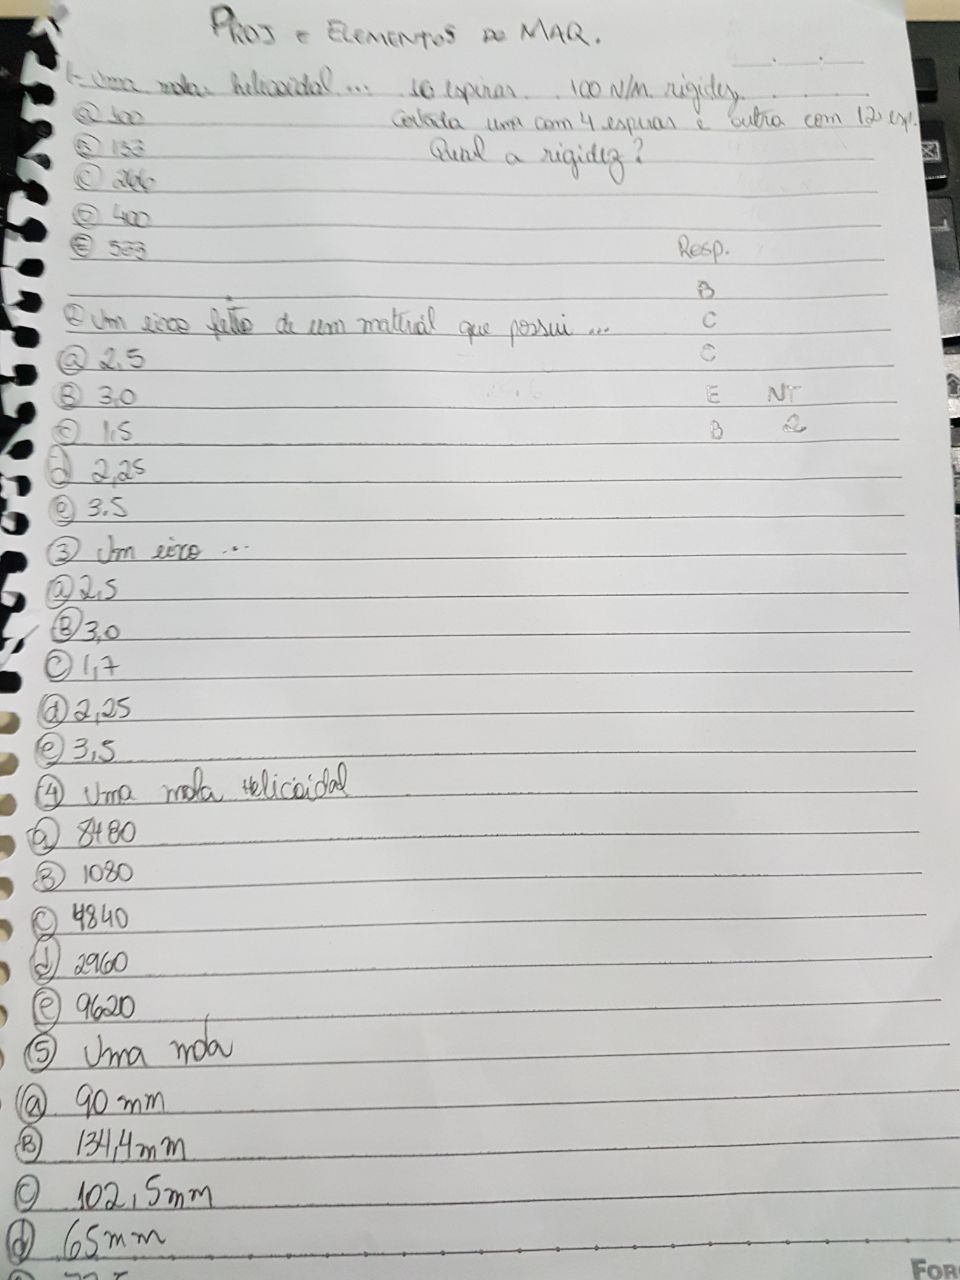 PROJ e ELEMENTOS DE MAQ.
1- Uma mola helicoidal ... 16 espiras. 100 N/m. rigidez
Cortada uma com 4 espiras e outra com 12 esp.
Qual a rigidez?
a 100
B 133
C 266
D 400
E 533
Resp.
B
C
C
E NT
B 2
2 Um eixo feito de um material que possui ...
a 2,5
B 3,0
C 1,5
d 2,25
e 3.5
3 Um eixo ...
a 2,5
B 3,0
C 1,7
d 2,25
e 3,5
4 Uma mola Helicoidal
a 8480
B 1080
C 4840
d 2960
e 9620
5 Uma mola
a 90 mm
B 134,4 mm
C 102,5mm
d 65mm